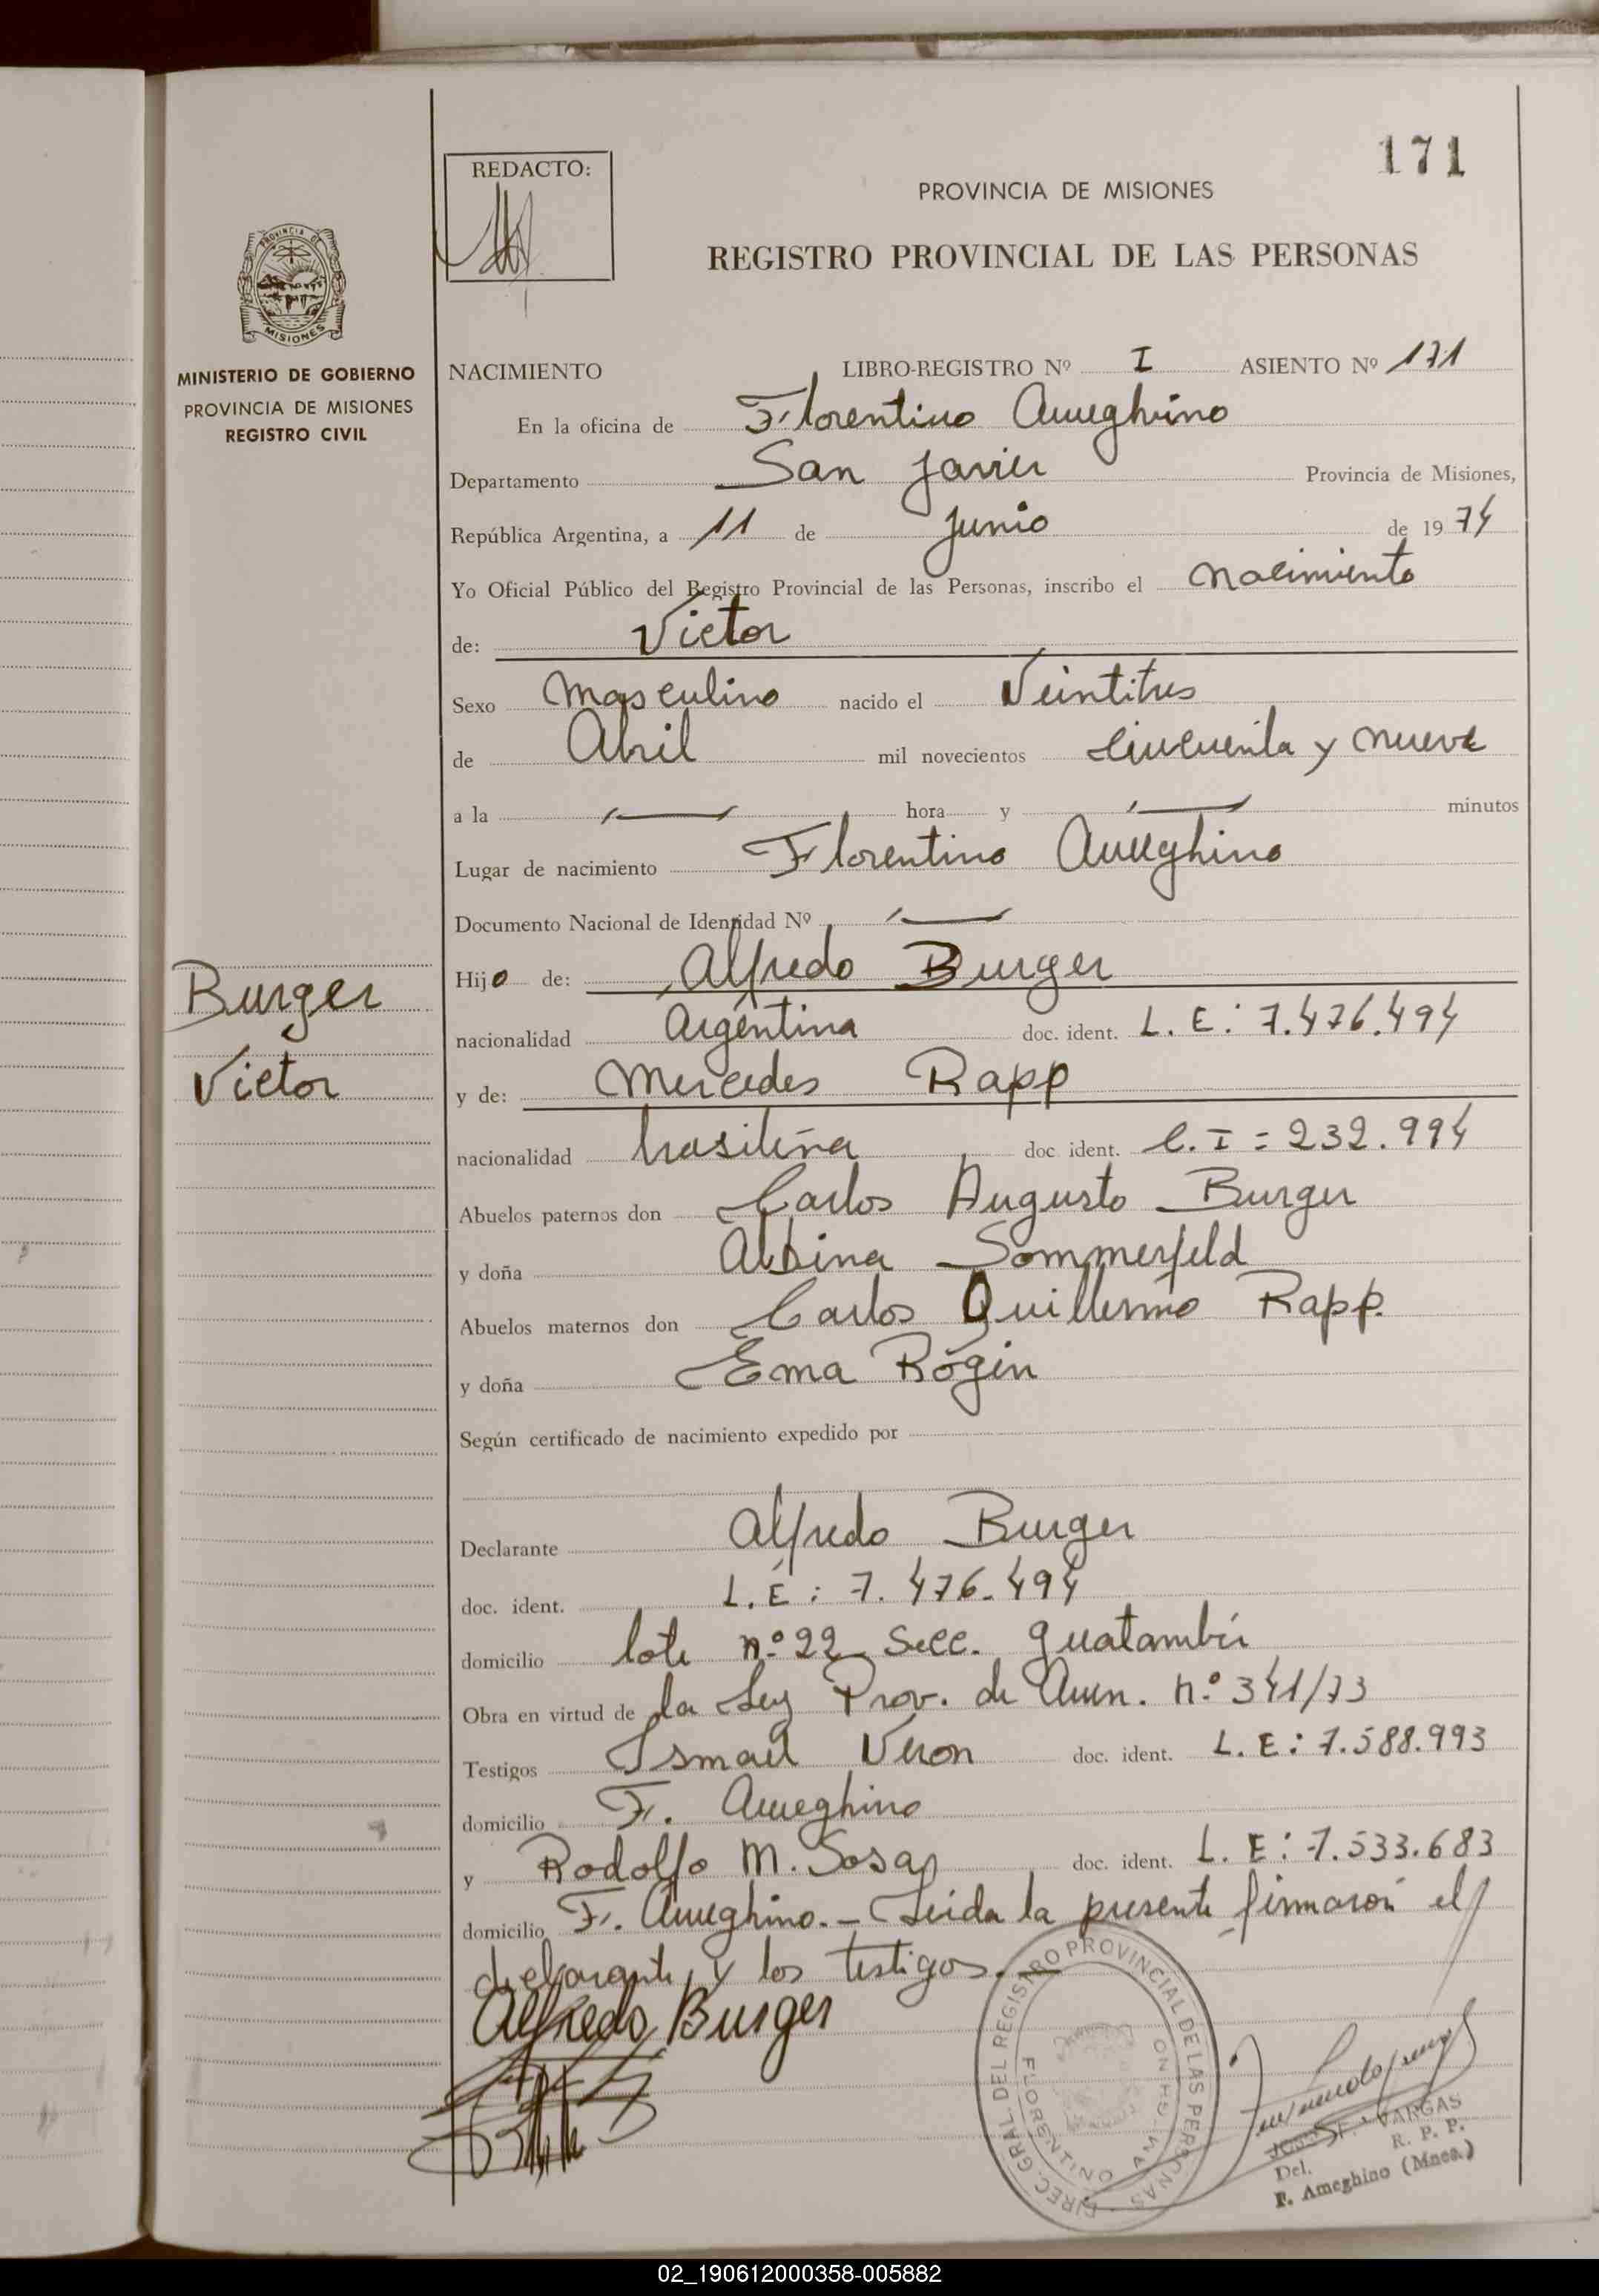 171
REDACTO:
PROVINCIA DE MISIONES
REGISTRO PROVINCIAL DE LAS PERSONAS
PROVINCIA DE
MISIONES
MINISTERIO DE GOBIERNO
PROVINCIA DE MISIONES
REGISTRO CIVIL
NACIMIENTO LIBRO-REGISTRO Nº I ASIENTO Nº 171
En la oficina de Florentino Ameghino
Departamento San Javier Provincia de Misiones,
República Argentina, a 11 de Junio de 1974
Yo Oficial Público del Registro Provincial de las Personas, inscribo el nacimiento
de: Victor
Sexo Masculino nacido el Veintitres
de Abril mil novecientos cincuenta y nueve
a la — hora y — minutos
Lugar de nacimiento Florentino Ameghino
Documento Nacional de Identidad Nº —
Hijo de: Alfredo Burger
nacionalidad Argentina doc. ident. L. E: 7.476.494
Burger
Victor
y de: Mercedes Rapp
nacionalidad brasileña doc. ident. C. I = 232.994
Abuelos paternos don Carlos Augusto Burger
y doña Albina Sommerfeld
Abuelos maternos don Carlos Guillermo Rapp.
y doña Ema Rogin
Según certificado de nacimiento expedido por
Declarante Alfredo Burger
doc. ident. L. E: 7.476.494
domicilio lote n.º 22 Secc. guatambú
Obra en virtud de la Ley Prov. de Amn. n.º 341/73
Testigos Ismael Veron doc. ident. L. E: 7.588.993
domicilio F. Ameghino
y Rodolfo M. Sosa doc. ident. L. E: 7.533.683
domicilio F. Ameghino. - Leida la presente firmaron el
declarante y los testigos. —
Alfredo Burger
DIREC. GRAL. DEL REGISTRO PROVINCIAL DE LAS PERSONAS
FLORENTINO AMEGHINO
VARGAS
Del. R. P. P.
F. Ameghino (Mnes.)
02_190612000358-005882